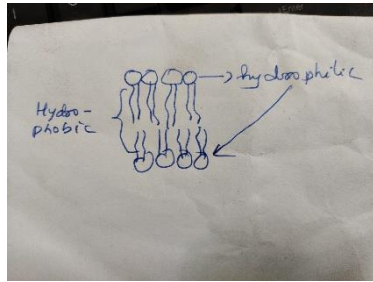 hydrophilic
Hydro-
phobic